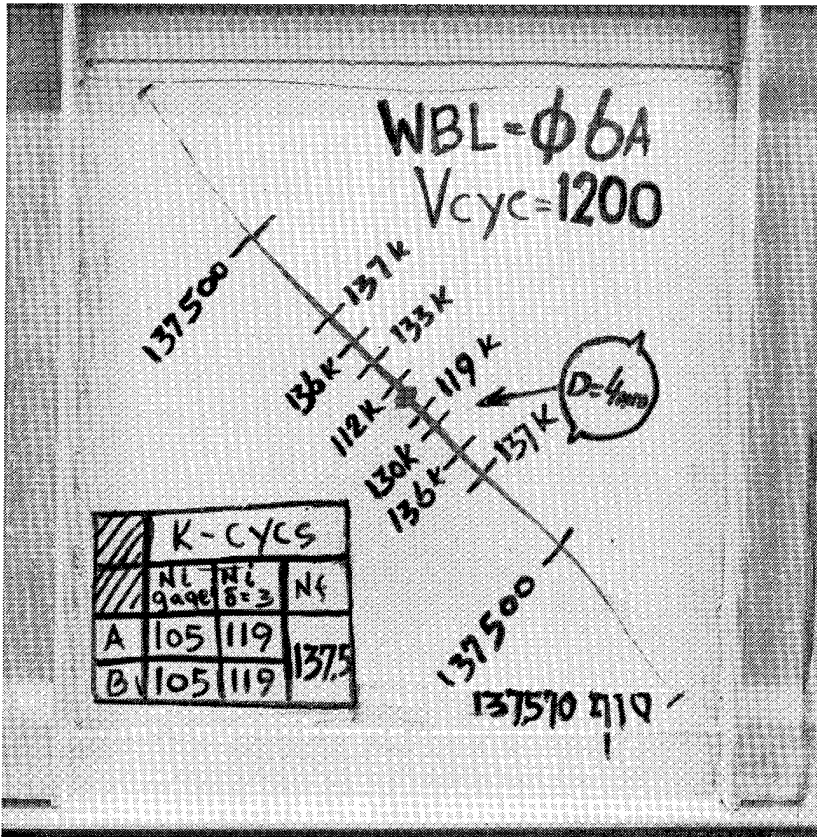 WBL=φ6A
Vcyc=1200
137500
137K
133K
136K
119K
112K
D=4mm
130K
137K
136K
137500
K-CYCS
Ni gage Ni δ=3 Nf
A 105 119 137.5
B 105 119
137570